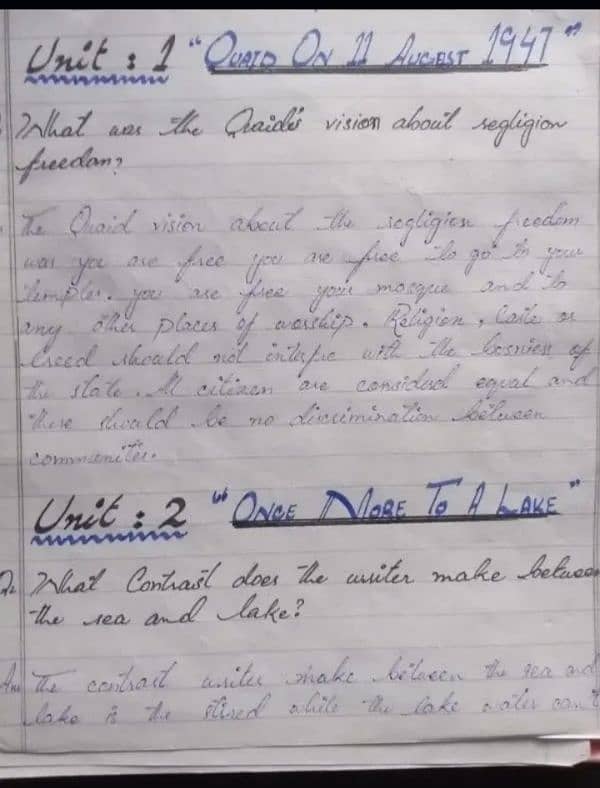 Unit : 1 "QUAID ON 11 AUGUST 1947"
What was the Quaid's vision about regligion
freedom?
The Quaid vision about the regligion freedom
was you are free you are free to go to your
temples. you are free your mosque and to
any other places of worship. Religion, Caste or
Creed should not with the of
the state. All citizen are considerd equal and
there should be no discrimination between
communites.
Unit : 2 "ONCE MORE TO A LAKE"
What Contrast does the writer make between
the sea and lake?
Ans The contrast writer make between the sea and
lake is the while the lake water can't